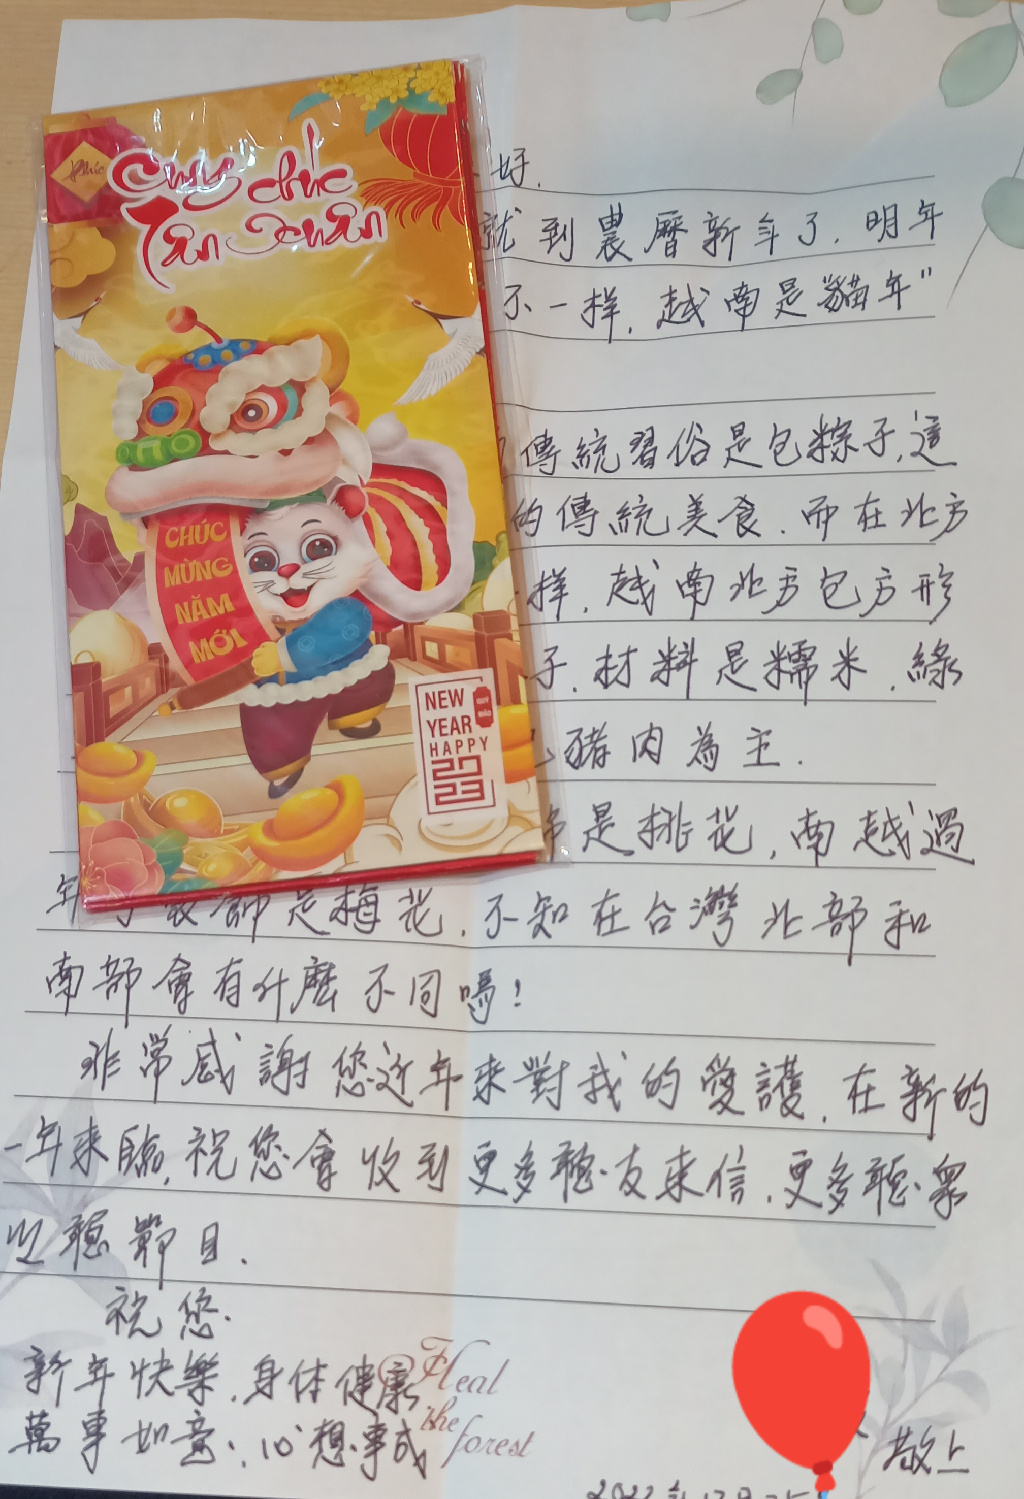 Phúc
Cung chúc
Tân Xuân
CHÚC
MỪNG
NĂM
MỚI
NEW
YEAR
HAPPY
2023
好.
就到農曆新年了.明年
不一样,越南是貓年"
傳統習俗是包粽子,這
的傳統美食.而在北方
样,越南北方包方形
子.材料是糯米.綠
豬肉為主.
是桃花,南越過
年 裝飾是梅花.不知在台灣北部和
南部會有什麼不同嗎!
非常感謝您近年來對我的愛護,在新的
一年来臨,祝您會收到更多聽友来信,更多聽眾
收聽節目.
祝您.
新年快樂.身体健康
萬事如意,心想事成
Heal
the
forest
敬上